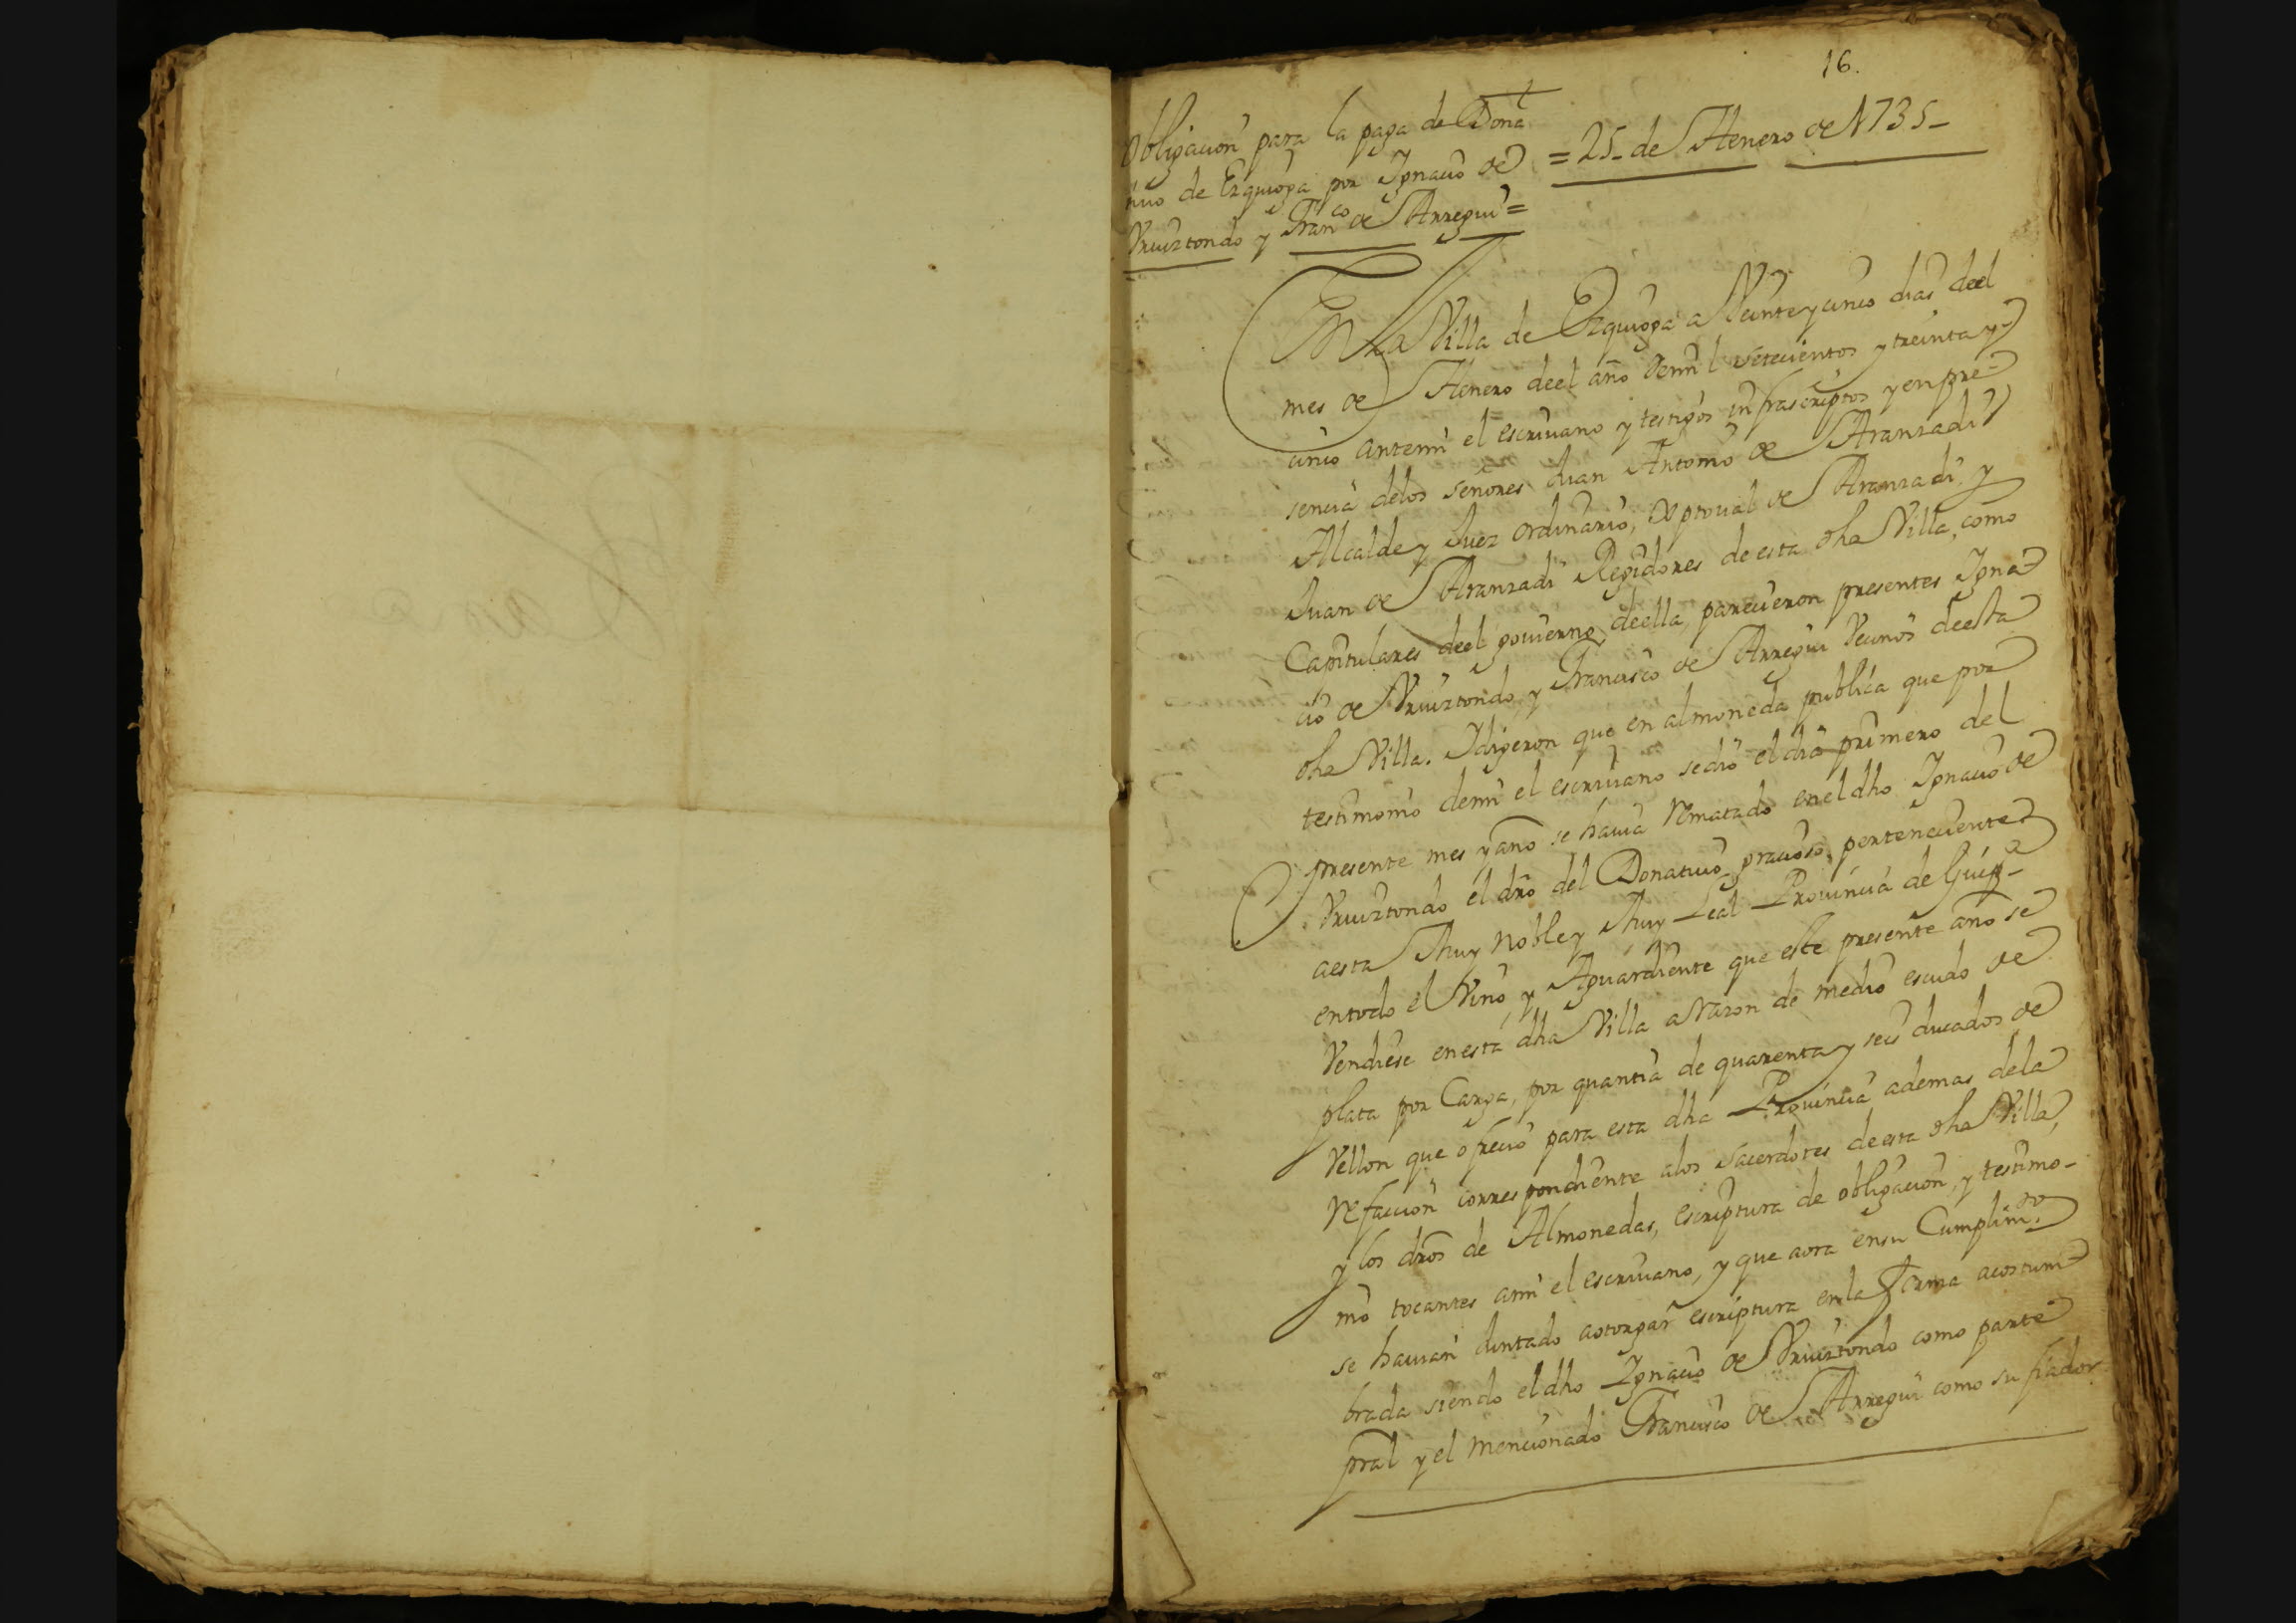 16.
Obligacion para la paga de Dona
tiuo de Ezquioga por Ignacio de
Vruiztondo y Franco de Arregui =
= 25 de Henero de 1735
En la Villa de Ezquioga a Veinte y cinco dias deel
mes de Henero deel año de mil setecientos y treinta y
cinco antemi el escriuano y testigos infrascriptos y en pre-
sencia delos señores Juan Antonio de Aranzadi
Alcalde y Juez ordinario, de Aranzadi, y
Juan de Aranzadi Regidores de esta dha Villa, como
Capitulares deel gouierno deella, parecieron presentes Igna
cio de Vruiztondo, y Francisco de Arregui Vecinos deesta
dha Villa. I digeron que en almoneda publica que por
testimonio demi el escriuano se dio el dia primero del
presente mes y año se hauia rematado en el dho Ignacio de
Vruiztondo el dro del Donatiuo gracioso, perteneciente
aesta Muy Noble y Muy Leal Prouincia de Guipa
entodo el Vino, y Aguardiente que este presente año se
Vendiese enesta dha Villa a razon de medio escudo de
plata por Carga, por quantia de quarenta y seis ducados de
Vellon que ofrecio para esta dha Prouincia ademas dela
refaccion correspondiente alos sacerdotes de esta dha Villa,
y los dros de Almonedas, escriptura de obligacion, y testimo-
nio tocantes ami el escriuano, y que aora ensu Cumplimto
se hauian Juntado aotorgar escriptura en la Forma acostum
brada siendo el dho Ignacio de Vruiztondo como parte
pral y el mencionado Francisco de Arregui como su fiador